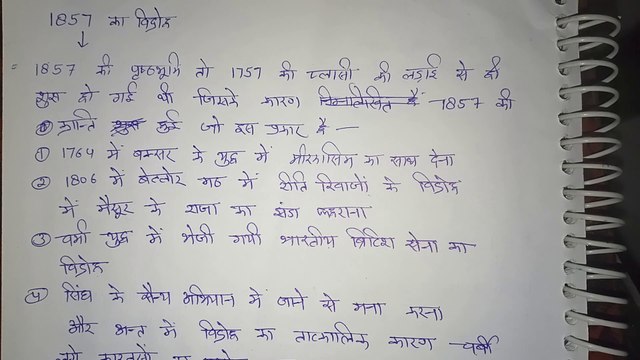 1857 का विद्रोह
↓
1857 की पृष्ठभूमि तो 1757 की प्लासी की लड़ाई से ही
शुरू हो गई थी जिसके कारण निम्नलिखित है 1857 की
क्रान्ति शुरू हुई जो इस प्रकार है —
① 1764 में बक्सर के युद्ध में मीरकासिम का साथ देना
② 1806 में वेल्लोर मठ में रीति रिवाजों के विद्रोह
में मैसूर के राजा का झंडा फहराना
③ वर्मा युद्ध में भेजी गयी भारतीय ब्रिटिश सेना का
विद्रोह
④ सिंध के सैन्य अभियान में जाने से मना करना
और अन्त में विद्रोह का तात्कालिक कारण चर्बी